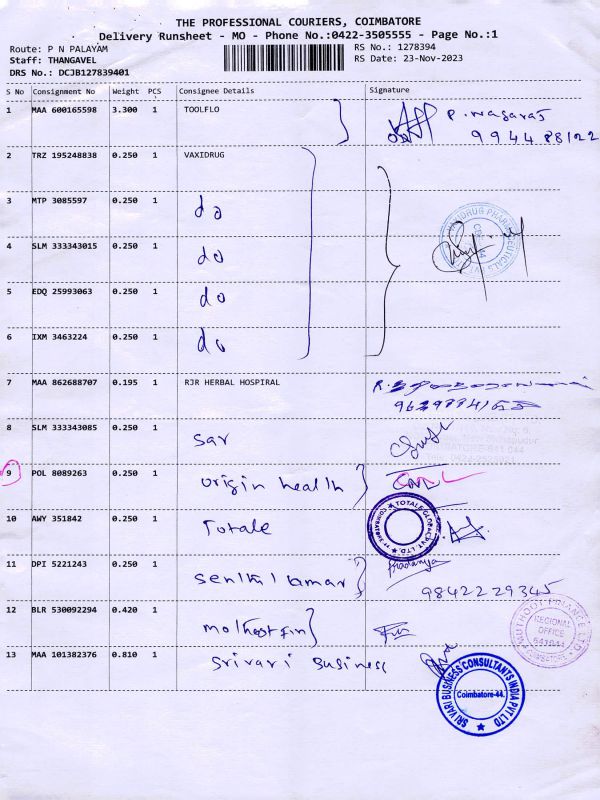 THE PROFESSIONAL COURIERS, COIMBATORE
Delivery Runsheet - MO - Phone No.:0422-3505555 - Page No.:1
Route: P N PALAYAM RS No.: 1278394
Staff: THANGAVEL RS Date: 23-Nov-2023
DRS No.: DCJB127839401
S No Consignment No Weight PCS Consignee Details Signature
1 MAA 600165598 3.300 1 TOOLFLO P. Nagaraj
994488122
2 TRZ 195248838 0.250 1 VAXIDRUG
3 MTP 3085597 0.250 1 do
4 SLM 333343015 0.250 1 do
5 EDQ 25993063 0.250 1 do
6 IXM 3463224 0.250 1 do
7 MAA 862688707 0.195 1 RJR HERBAL HOSPIRAL
8 SLM 333343085 0.250 1 sar
9 POL 8089263 0.250 1 origin health
10 AWY 351842 0.250 1 Totale
TOTALE GLOBAL PVT. LTD. COIMBATORE
11 DPI 5221243 0.250 1 Senthil kumar Pradanya
9842229345
12 BLR 530092294 0.420 1
MUTHOOT FINANCE LTD. REGIONAL OFFICE 641044 COIMBATORE
13 MAA 101382376 0.810 1 Srivari Business
SRI VARI BUSINESS CONSULTANTS INDIA PVT LTD Coimbatore-44.